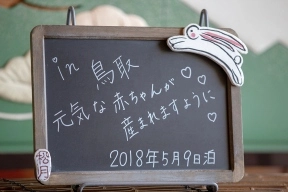 in 鳥取
元気な赤ちゃんが
産まれますように
2018年5月9日泊